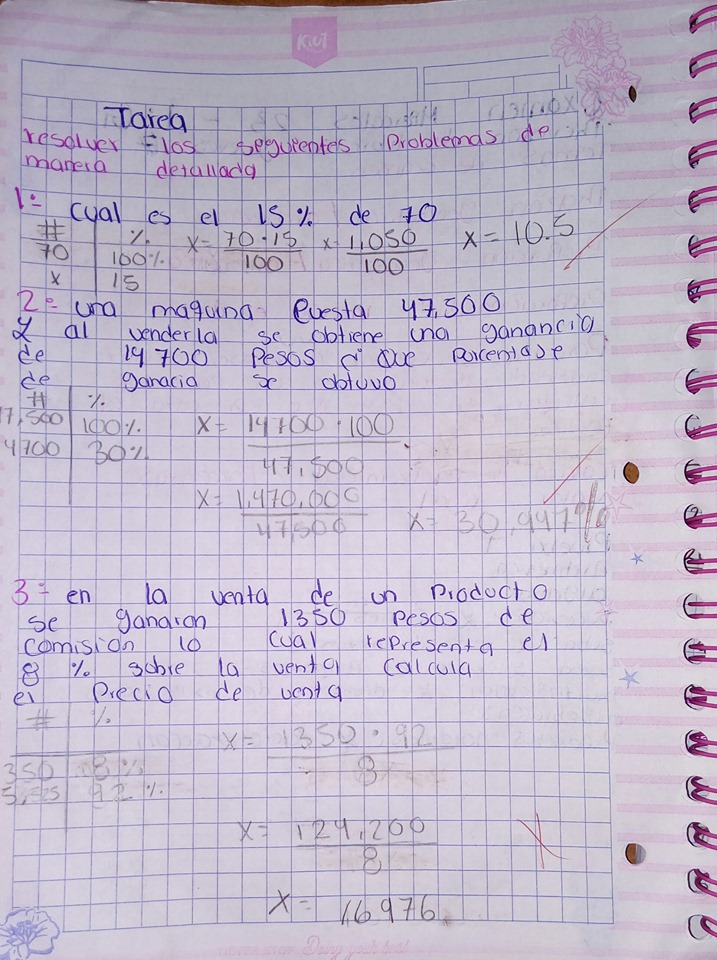 KiUT
Tarea
resolver los seguientes Problemas de
manera detallada
1=
cual es el 15% de 70
# % x= 70·15 x= 1,050 x= 10.5
70 100% 100 100
x 15
2= una maquina cuesta 47,500
y al venderla se obtiene una ganancia
de 14700 pesos ¿ que porcentaje
de ganacia se obtuvo
# %
7,500 100% x= 14700·100
4700 30% 47,500
x= 1,470,000
47,500 x= 30,947%
3= en la venta de un producto
se ganaron 1350 pesos de
comision lo cual representa el
8 % sobre la venta calcula
el precio de venta
# % x= 1350·92
350 8% 8
92%
x= 124,200
8
x= 16976